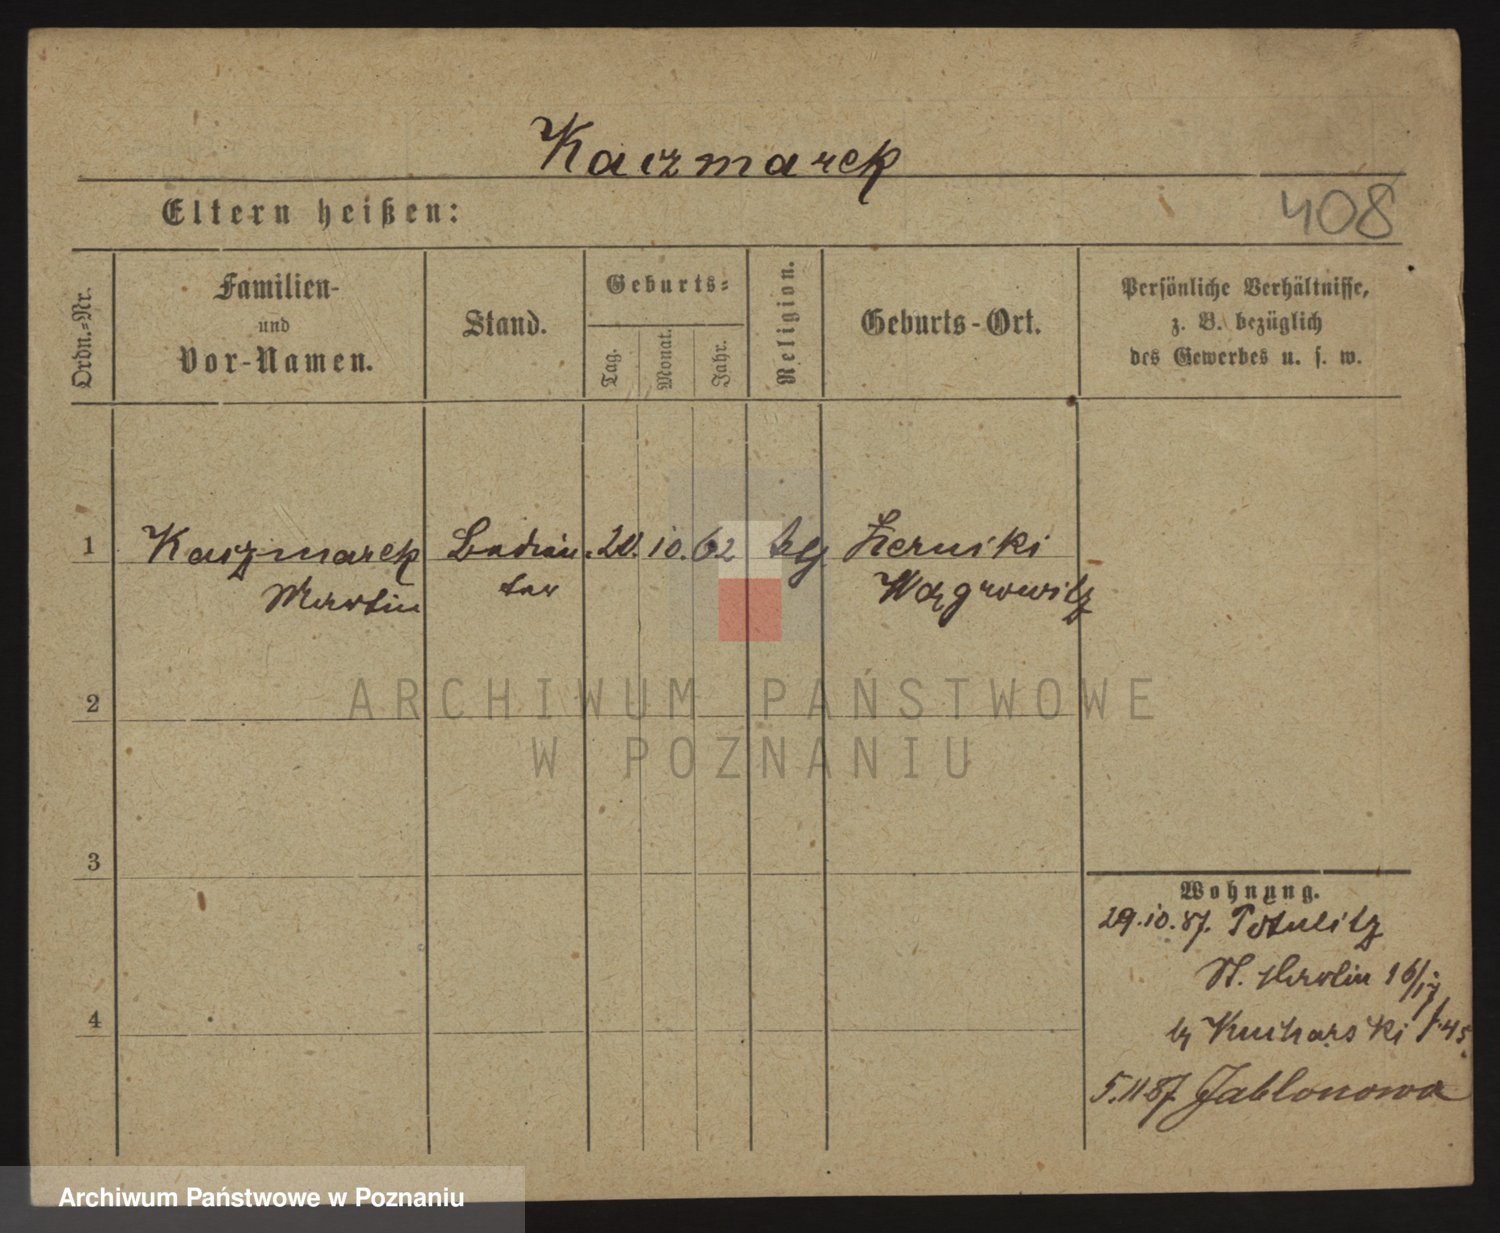 Kaczmarek
Eltern heißen:
408
Ordn.-Nr.
Familien-
und
Vor-Namen.
Stand.
Geburts-
Tag.
Monat.
Jahr.
Religion.
Geburts-Ort.
Persönliche Verhältnisse,
z. B. bezüglich
des Gewerbes u. s. w.
1 Kaczmarek 20. 10. 62
Martin Wągrowitz
2
3
4
Wohnung.
29.10.87. Potulitz
St. Martin 16/17
Kucharski
5.11 87 Jablonowa
ARCHIWUM PAŃSTWOWE
W POZNANIU
Archiwum Państwowe w Poznaniu